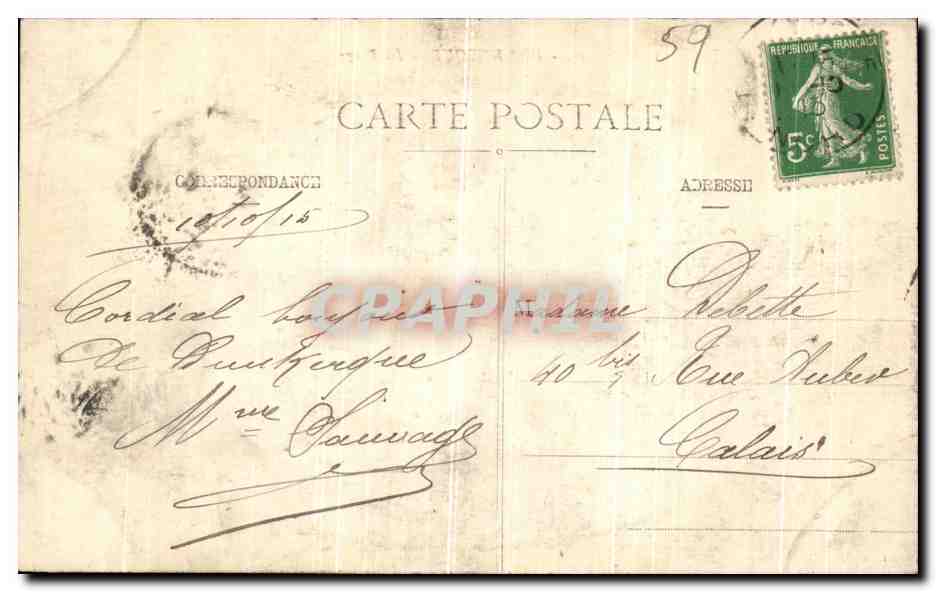 59
REPUBLIQUE FRANÇAISE
5c
POSTES
CARTE POSTALE
CORRESPONDANCE
ADRESSE
10/10/15
Cordial bonjour
de Dunkerque
Mme Sauvage
Madame Debette
40 bis Rue Auber
Calais
CPAPHIL